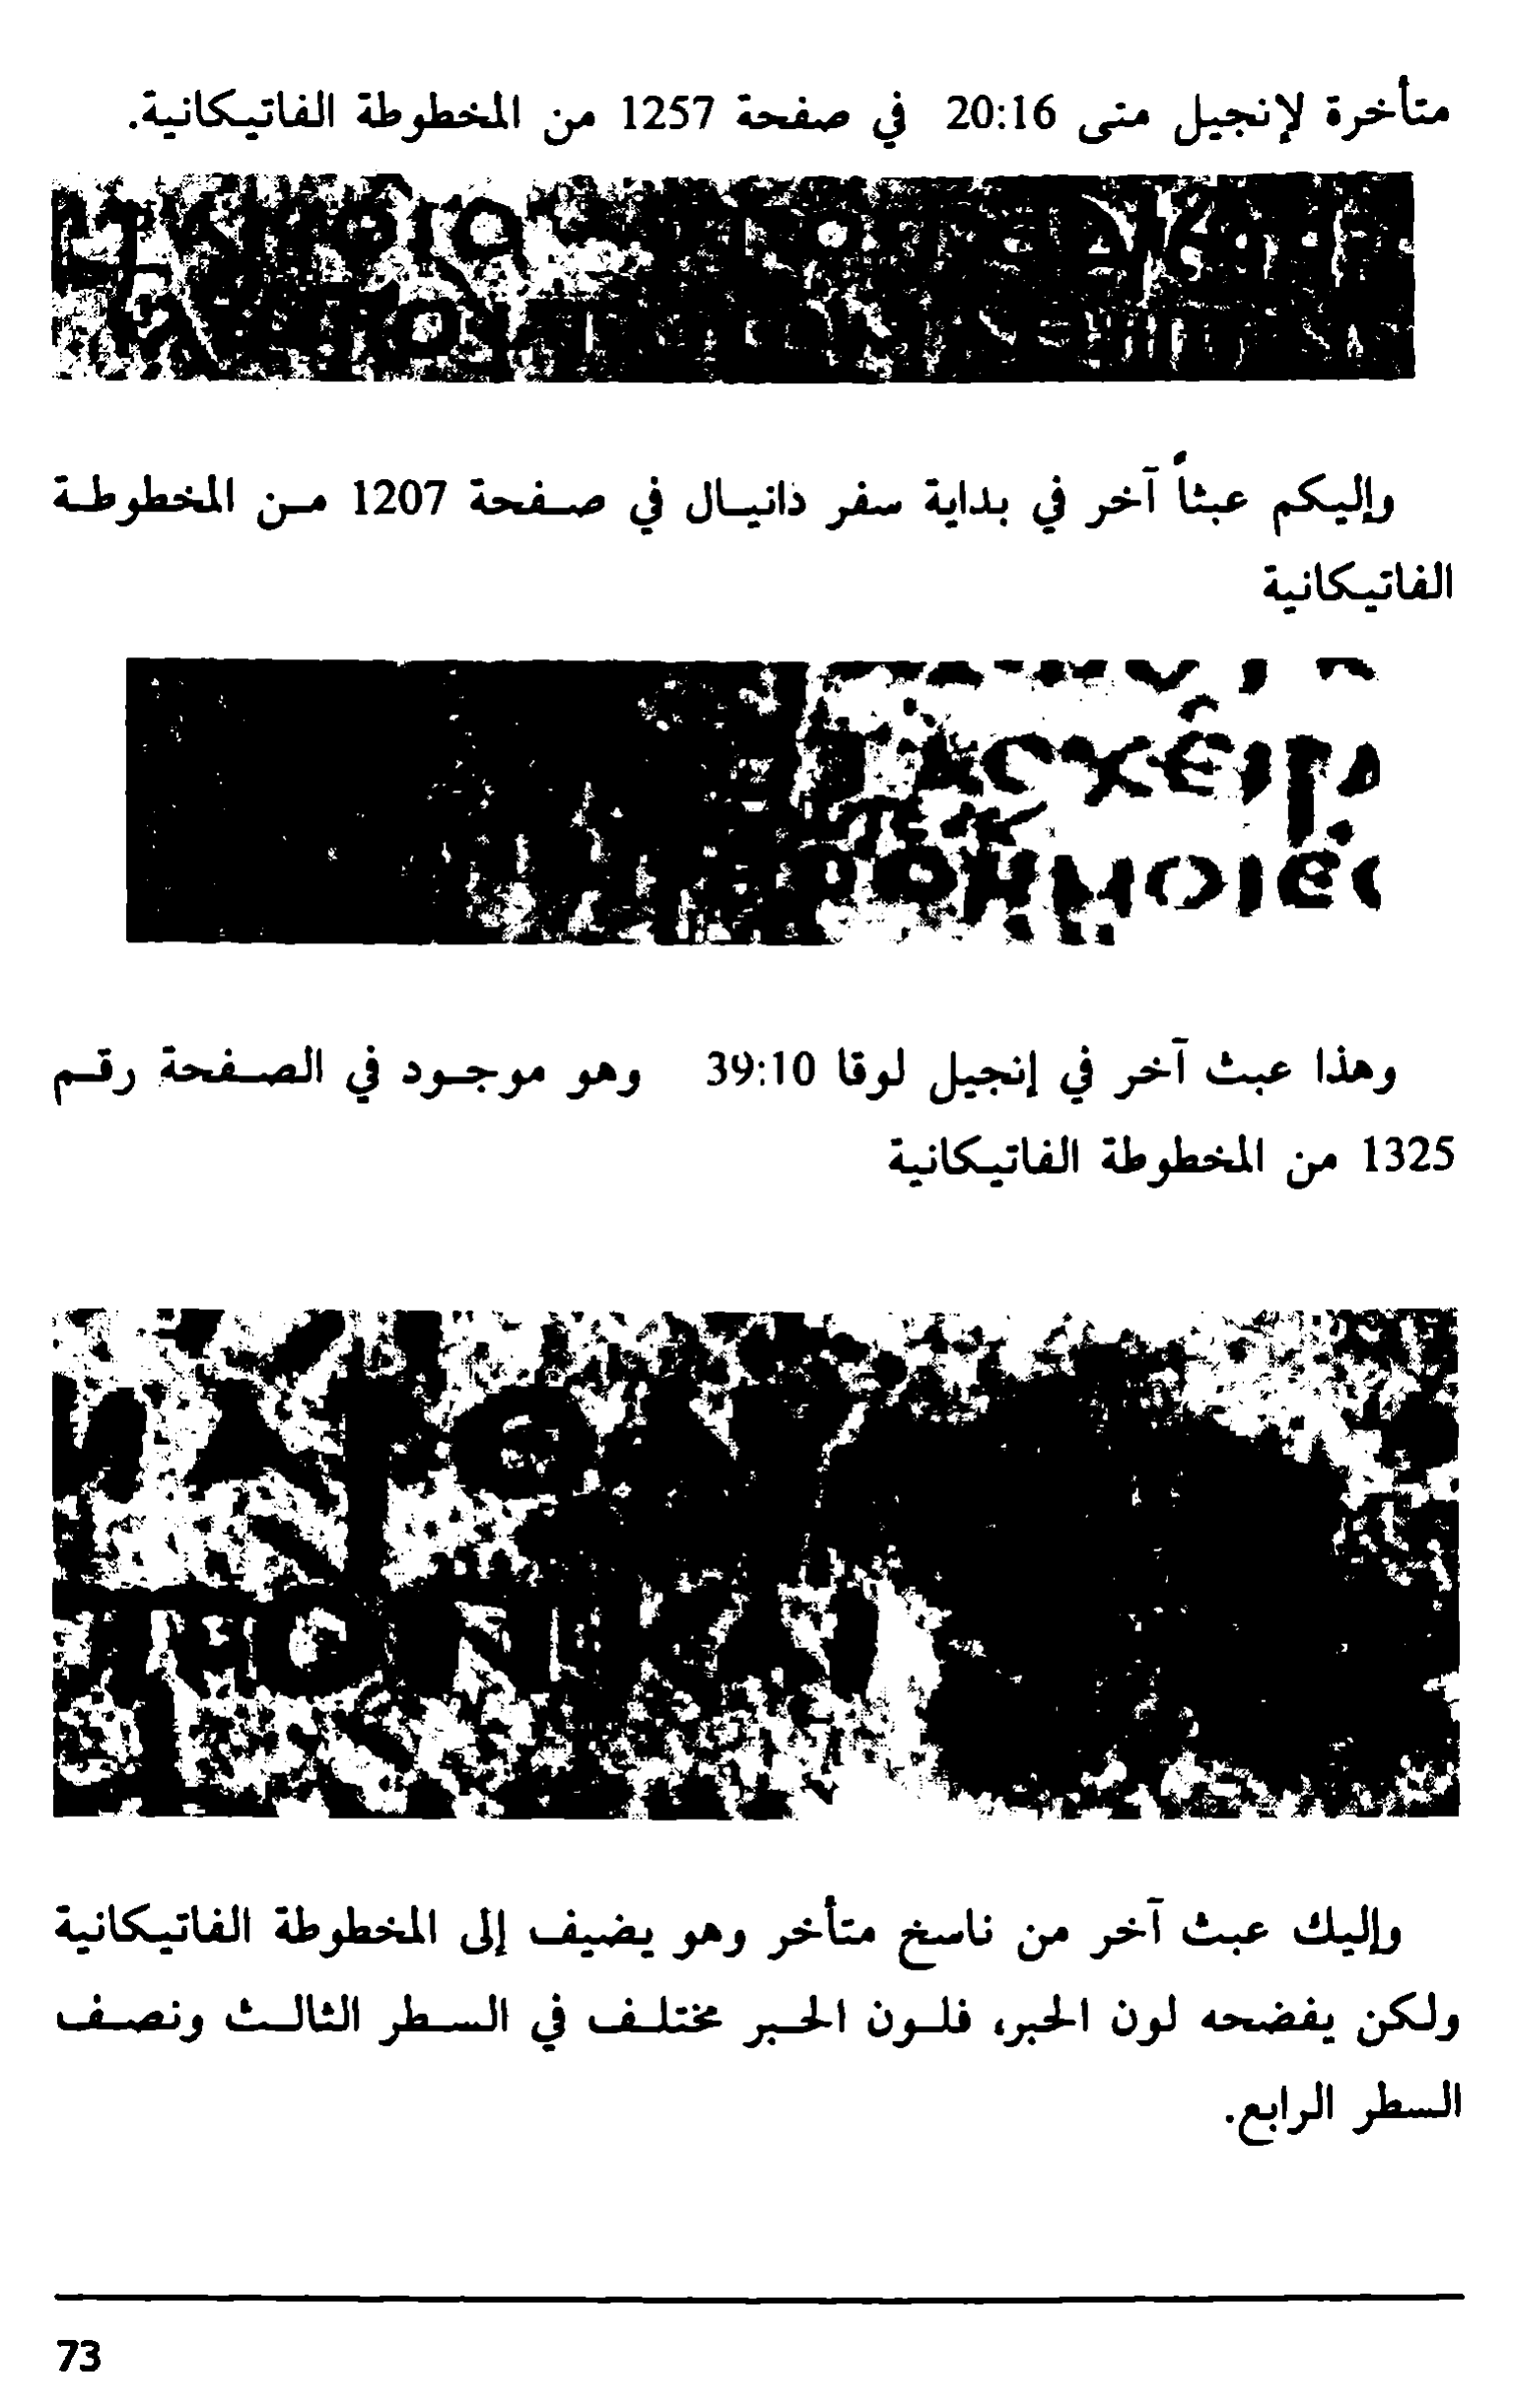 متأخرة لإنجيل متى 20:16 في صفحة 1257 من المخطوطة الفاتيكانية.
وإليكم عبثاً آخر في بداية سفر دانيال في صفحة 1207 من المخطوطة
الفاتيكانية
ΤΑСΧΕΙΡΑ
وهذا عبث آخر في إنجيل لوقا 39:10 وهو موجود في الصفحة رقم
1325 من المخطوطة الفاتيكانية
ΤΗΟΝΚΑΙ
وإليك عبث آخر من ناسخ متأخر وهو يضيف إلى المخطوطة الفاتيكانية
ولكن يفضحه لون الحبر، فلون الحبر مختلف في السطر الثالث ونصف
السطر الرابع.
73